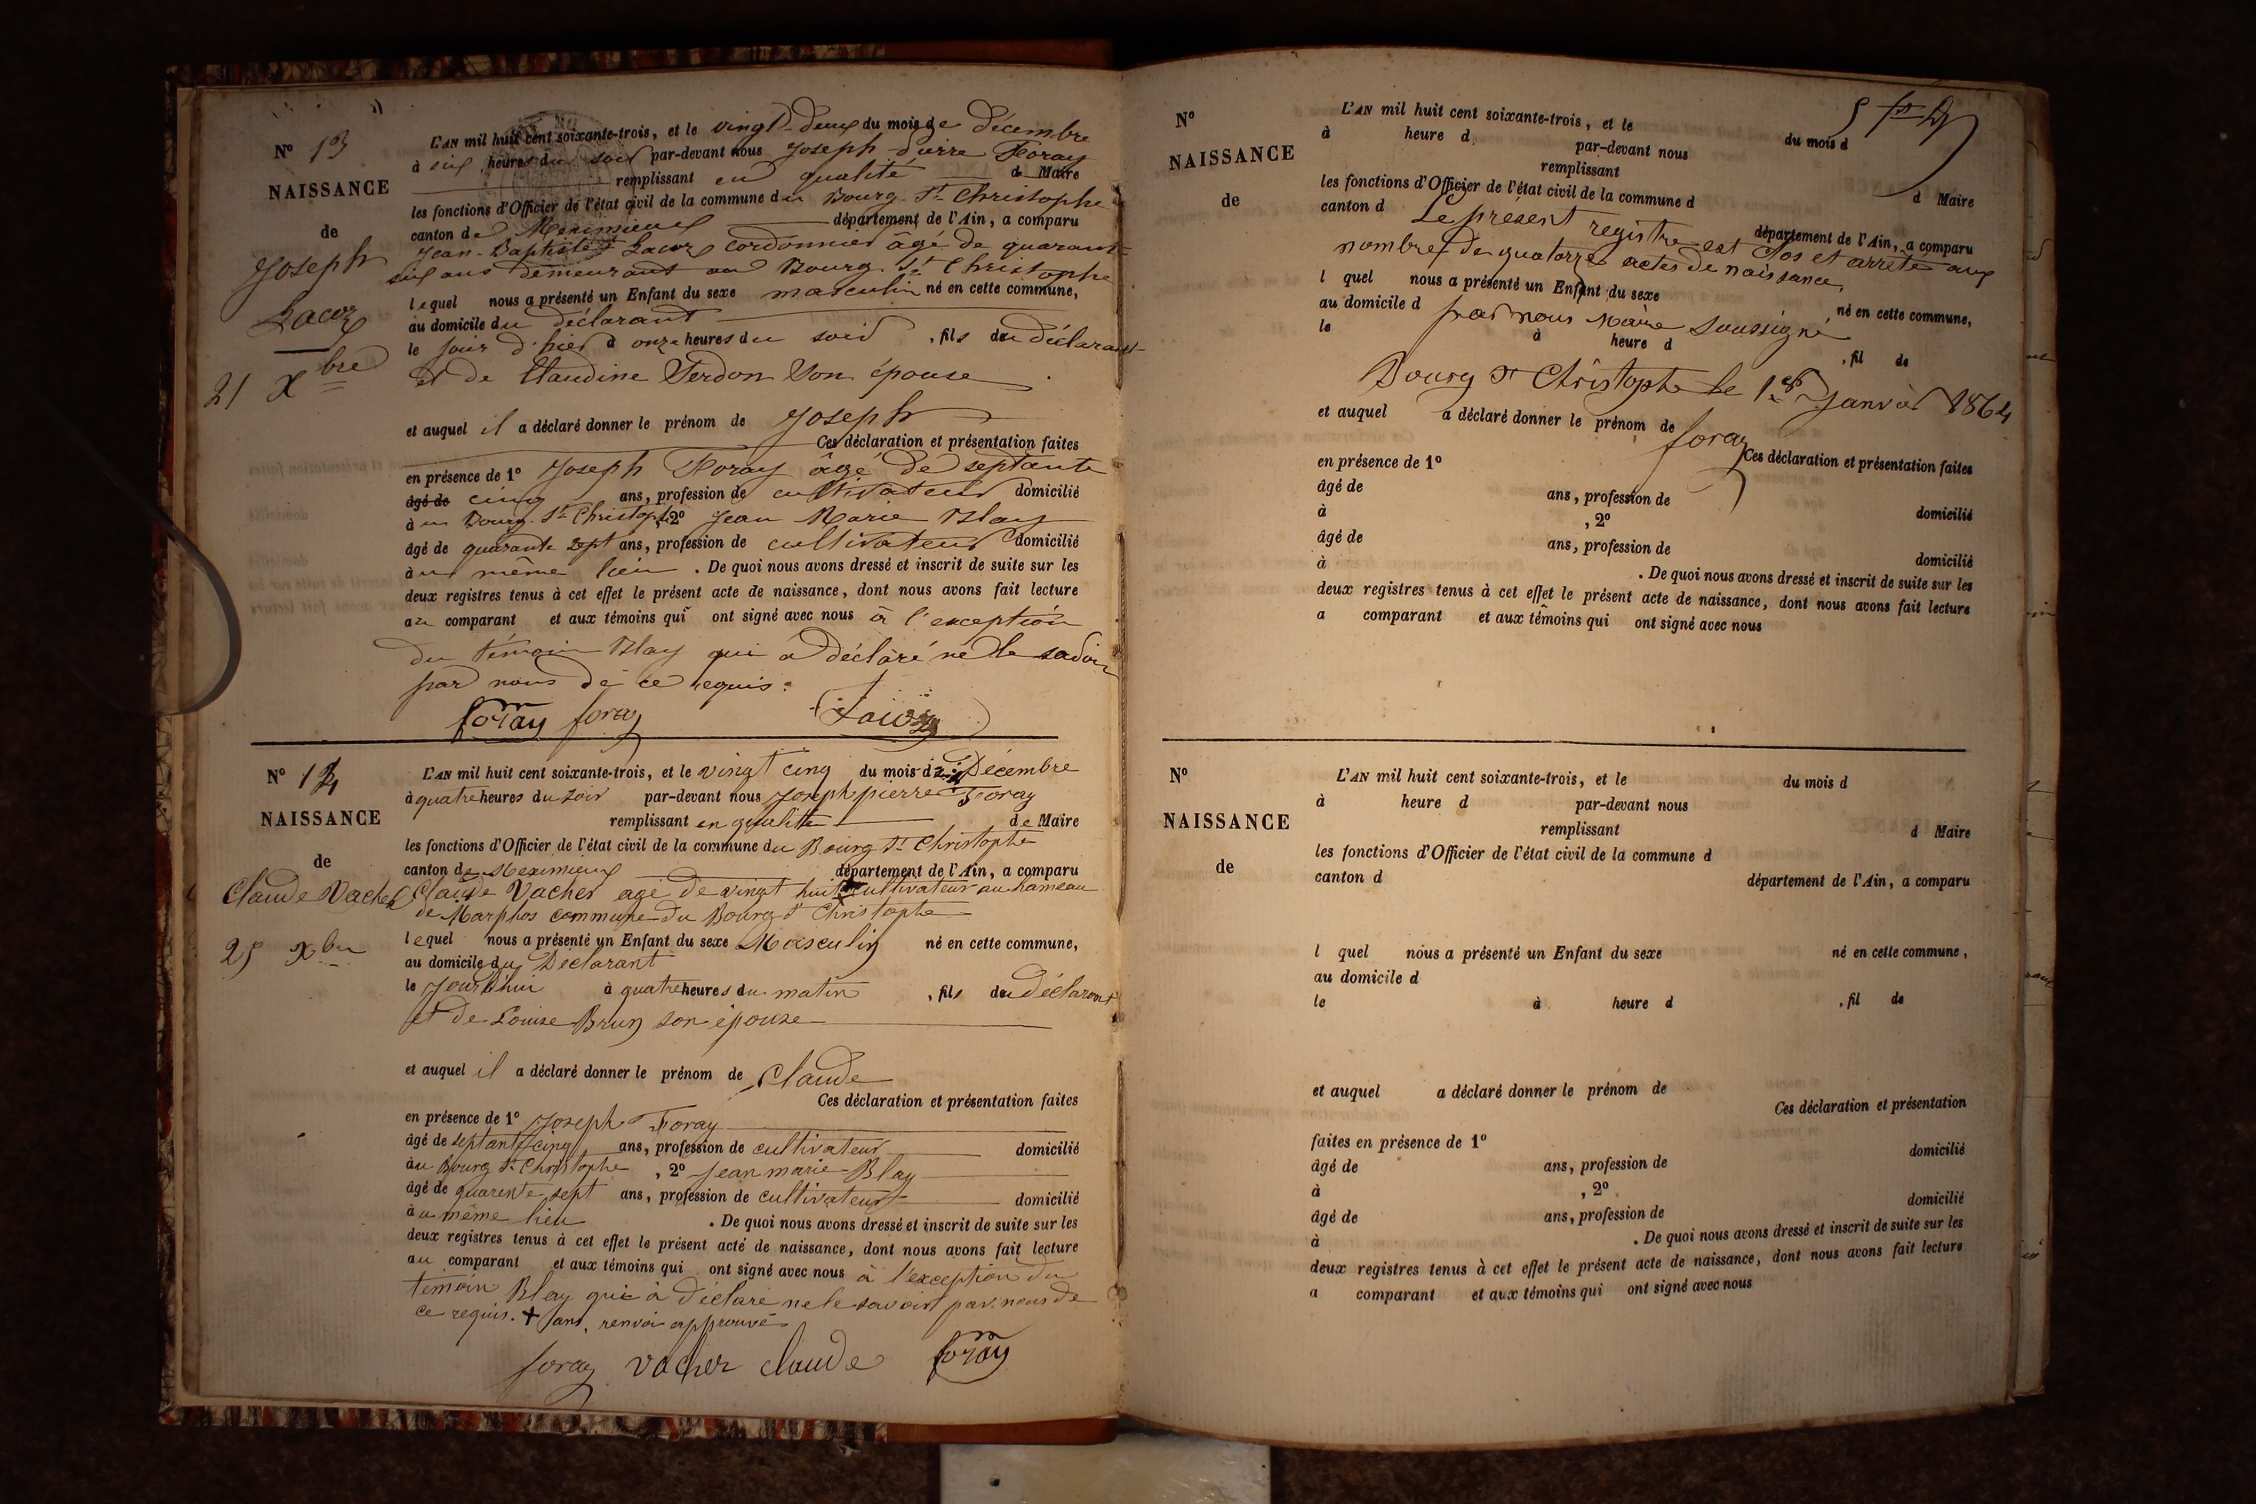 N° 13
NAISSANCE
de
Joseph
Lacoz
21 Xbre
L'AN mil huit cent soixante-trois, et le vingt-deux du mois de décembre
à six heures du soir par-devant nous Joseph-pierre Foray
remplissant en qualité de Maire
les fonctions d'Officier de l'état civil de la commune du Bourg-St-Christophe
canton de Meximieux département de l'Ain, a comparu
Jean-Baptiste cordonnier âgé de quarant-
six ans demeurant au Bourg-St Christophe
lequel nous a présenté un Enfant du sexe masculin né en cette commune,
au domicile du déclarant
le jour d'hier à onze heures du soir , fils du déclarant
et de Claudine Perdon son épouse
et auquel il a déclaré donner le prénom de Joseph
Ces déclaration et présentation faites
en présence de 1° Joseph Foray âgé de septante
âgé de cinq ans, profession de cultivateur domicilié
à u Bourg-St-Christophe , 2° Jean Marie Blay
âgé de quarante sept ans, profession de cultivateur domicilié
à u même lieu . De quoi nous avons dressé et inscrit de suite sur les
deux registres tenus à cet effet le présent acte de naissance, dont nous avons fait lecture
au comparant et aux témoins qui ont signé avec nous à l'exception
du témoin Blay qui a déclaré ne le savoir
par nous de ce requis.
foray foray
N° 14
NAISSANCE
de
Claude Vacher
25 Xbre
L'AN mil huit cent soixante-trois, et le vingt cinq du mois de Décembre
à quatre heures du soir par-devant nous Joseph pierre Foray
remplissant en qualité de Maire
les fonctions d'Officier de l'état civil de la commune du Bourg St Christophe
canton de Meximieux département de l'Ain, a comparu
Claude Vacher age de vingt huit cultivateur au hameau
de Marphos commune du Bourg St Christophe
lequel nous a présenté un Enfant du sexe Masculin né en cette commune,
au domicile du Declarant
le Jourdhui à quatre heures du matin , fils du déclarant
et de Louise Brun son épouse
et auquel il a déclaré donner le prénom de Claude
Ces déclaration et présentation faites
en présence de 1° Joseph Foray
âgé de septante cinq ans, profession de cultivateur domicilié
àu Bourg St Christophe , 2° Jean marie Blay
âgé de quarente sept ans, profession de cultivateur domicilié
àu même lieu . De quoi nous avons dressé et inscrit de suite sur les
deux registres tenus à cet effet le présent acte de naissance, dont nous avons fait lecture
au comparant et aux témoins qui ont signé avec nous à l'exception du
témoin Blay qui à déclaré ne le savoir par nous de
ce requis. + ans, renvoi approuvé
foray vacher claude foray
N°
NAISSANCE
de
L'AN mil huit cent soixante-trois, et le du mois d
à heure d par-devant nous
remplissant d Maire
les fonctions d'Officier de l'état civil de la commune d
canton d département de l'Ain, a comparu
Le présent registre est clos et arrêté aux
nombre de quatorze actes de naissance
l quel nous a présenté un Enfant du sexe né en cette commune,
au domicile d
par nous Maire soussigné
le à heure d , fil de
Bourg St Christophe le 1er Janvier 1864
et auquel a déclaré donner le prénom de
foray
Ces déclaration et présentation faites
en présence de 1°
âgé de ans, profession de domicilié
à , 2°
âgé de ans, profession de domicilié
à . De quoi nous avons dressé et inscrit de suite sur les
deux registres tenus à cet effet le présent acte de naissance, dont nous avons fait lecture
a comparant et aux témoins qui ont signé avec nous
N°
NAISSANCE
de
L'AN mil huit cent soixante-trois, et le du mois d
à heure d par-devant nous
remplissant d Maire
les fonctions d'Officier de l'état civil de la commune d
canton d département de l'Ain, a comparu
l quel nous a présenté un Enfant du sexe né en cette commune,
au domicile d
le à heure d , fil de
et auquel a déclaré donner le prénom de
Ces déclaration et présentation
faites en présence de 1° domicilié
âgé de ans, profession de
à , 2° domicilié
âgé de ans, profession de
à . De quoi nous avons dressé et inscrit de suite sur les
deux registres tenus à cet effet le présent acte de naissance, dont nous avons fait lecture
a comparant et aux témoins qui ont signé avec nous